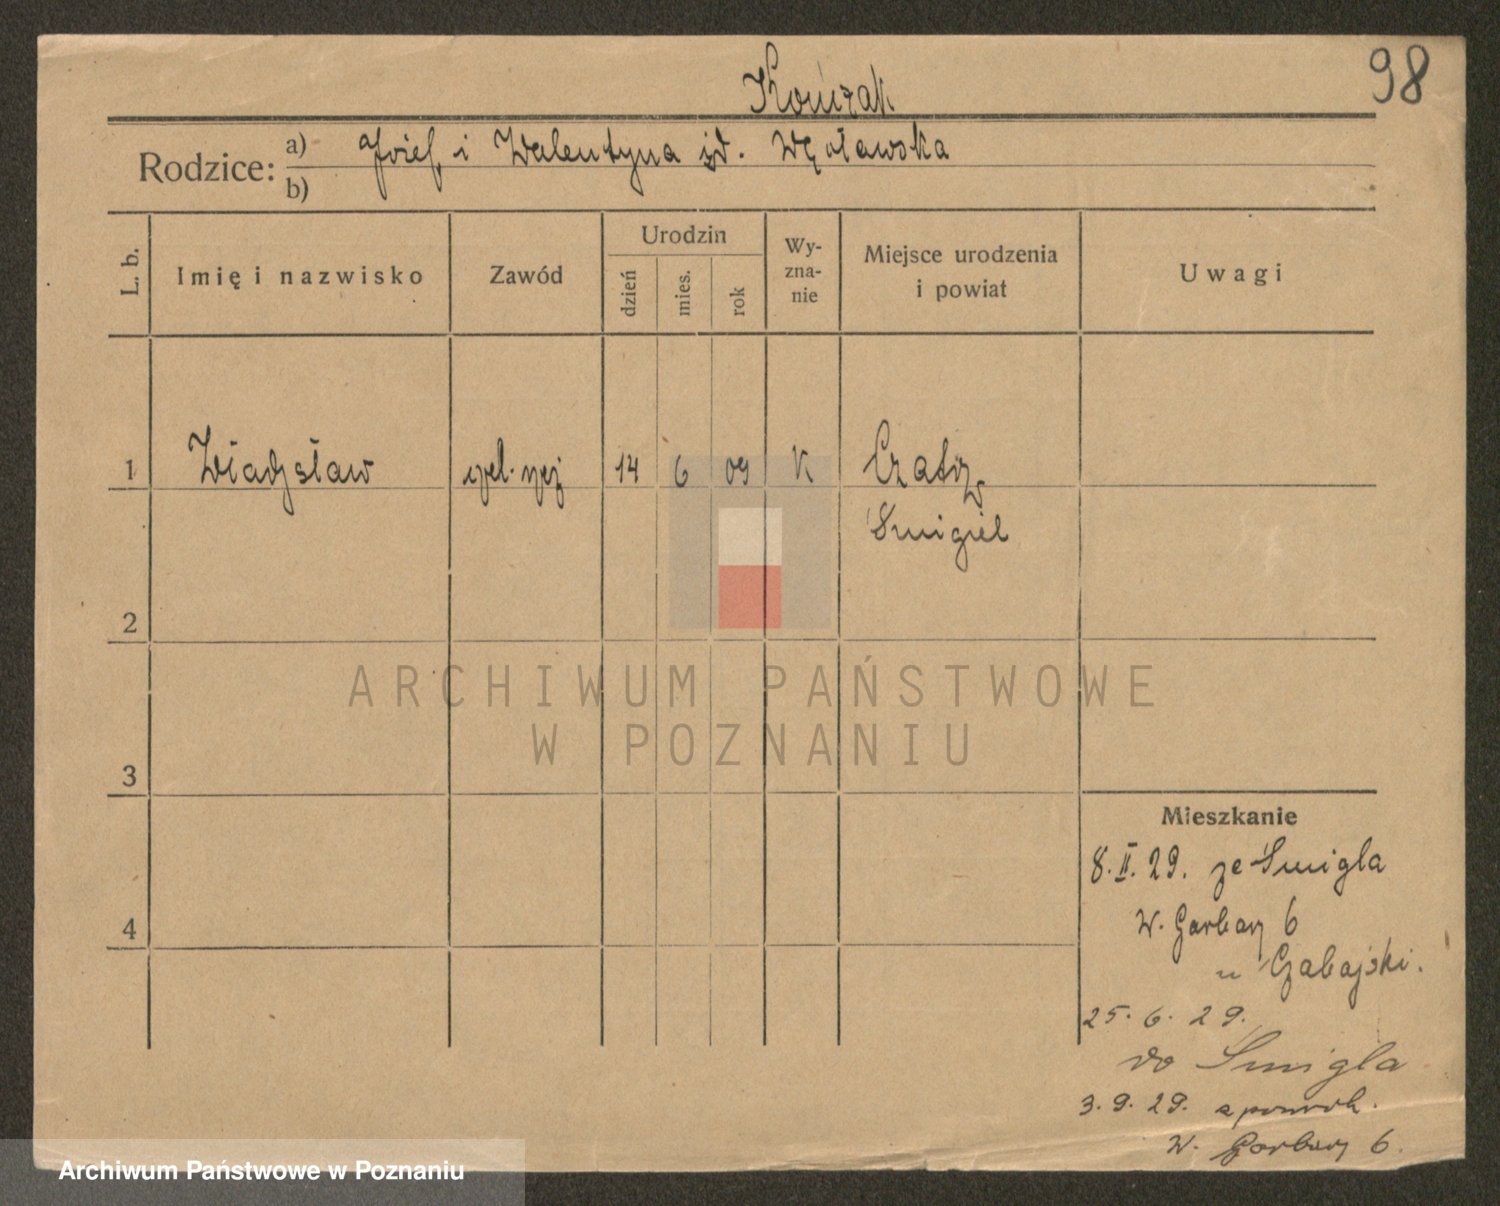 98
Konczak
Rodzice: a) Józef i Walentyna zd. Węcławska
b)
L. b. Imię i nazwisko Zawód Urodzin dzień mies. rok Wy-zna-nie Miejsce urodzenia i powiat Uwagi
1 Władysław czel. rzeź 14 6 09 K Czacz
Śmigiel
2
3
Mieszkanie
8. II. 29. ze Śmigla
4 W. Garbary 6
u Czabajski.
25. 6. 29.
do Śmigla
3. 9. 29. z powrot.
W. Garbary 6.
ARCHIWUM PAŃSTWOWE
W POZNANIU
Archiwum Państwowe w Poznaniu